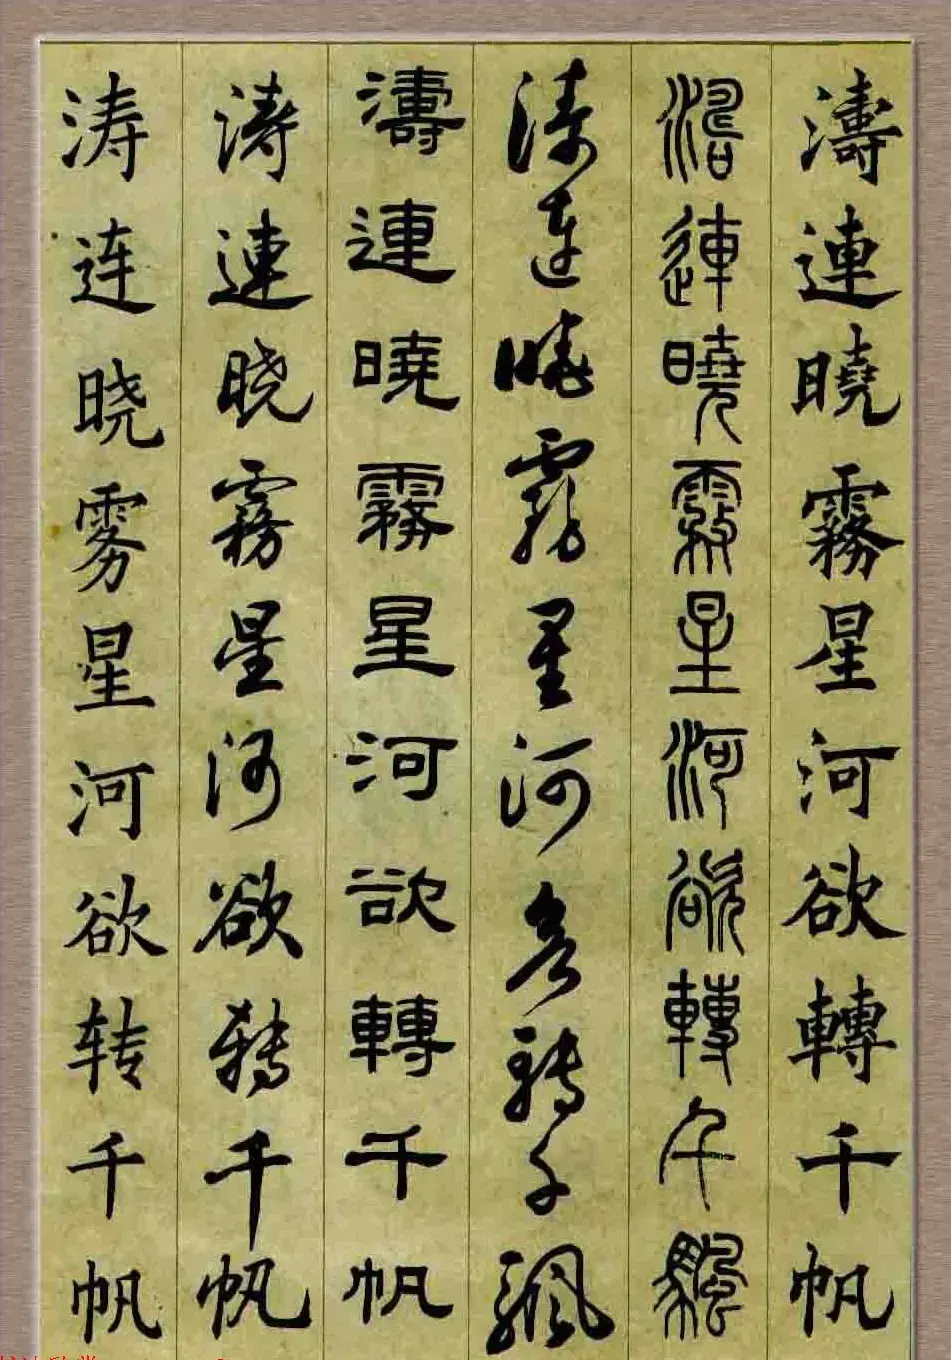 濤連曉霧星河欲轉千帆
濤連曉霧星河欲轉千颿
濤連曉霧星河欲轉千颿
濤連曉霧星河欲轉千帆
濤連晓霧星河欲轉千帆
涛连晓雾星河欲转千帆